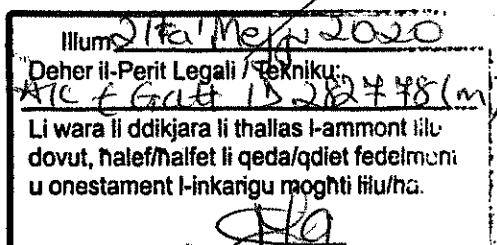 Illum 21 ta' Mejju 2020
Deher il-Perit Legali / Tekniku:
AIC Gatt ID 282778(M)
Li wara li ddikjara li tħallas l-ammont lilu
dovut, ħalef/ħalfet li qeda/qdiet fedelment
u onestament l-inkarigu mogħti lilu/ha.